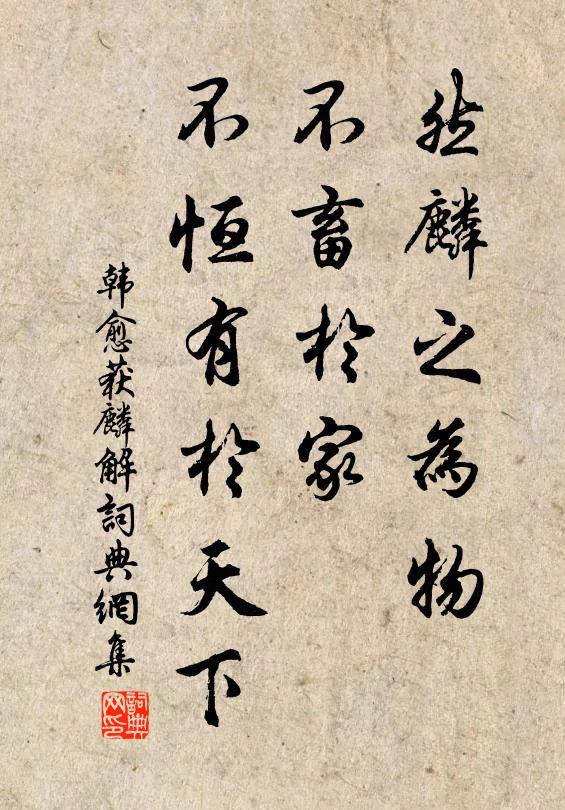 然麟之為物
不畜於家
不恒有於天下
韩愈获麟解詞典網集
詞典
网印